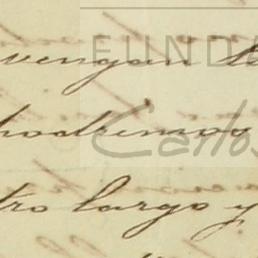 vengan
podremos
tro largo y
FUNDA
Carlos